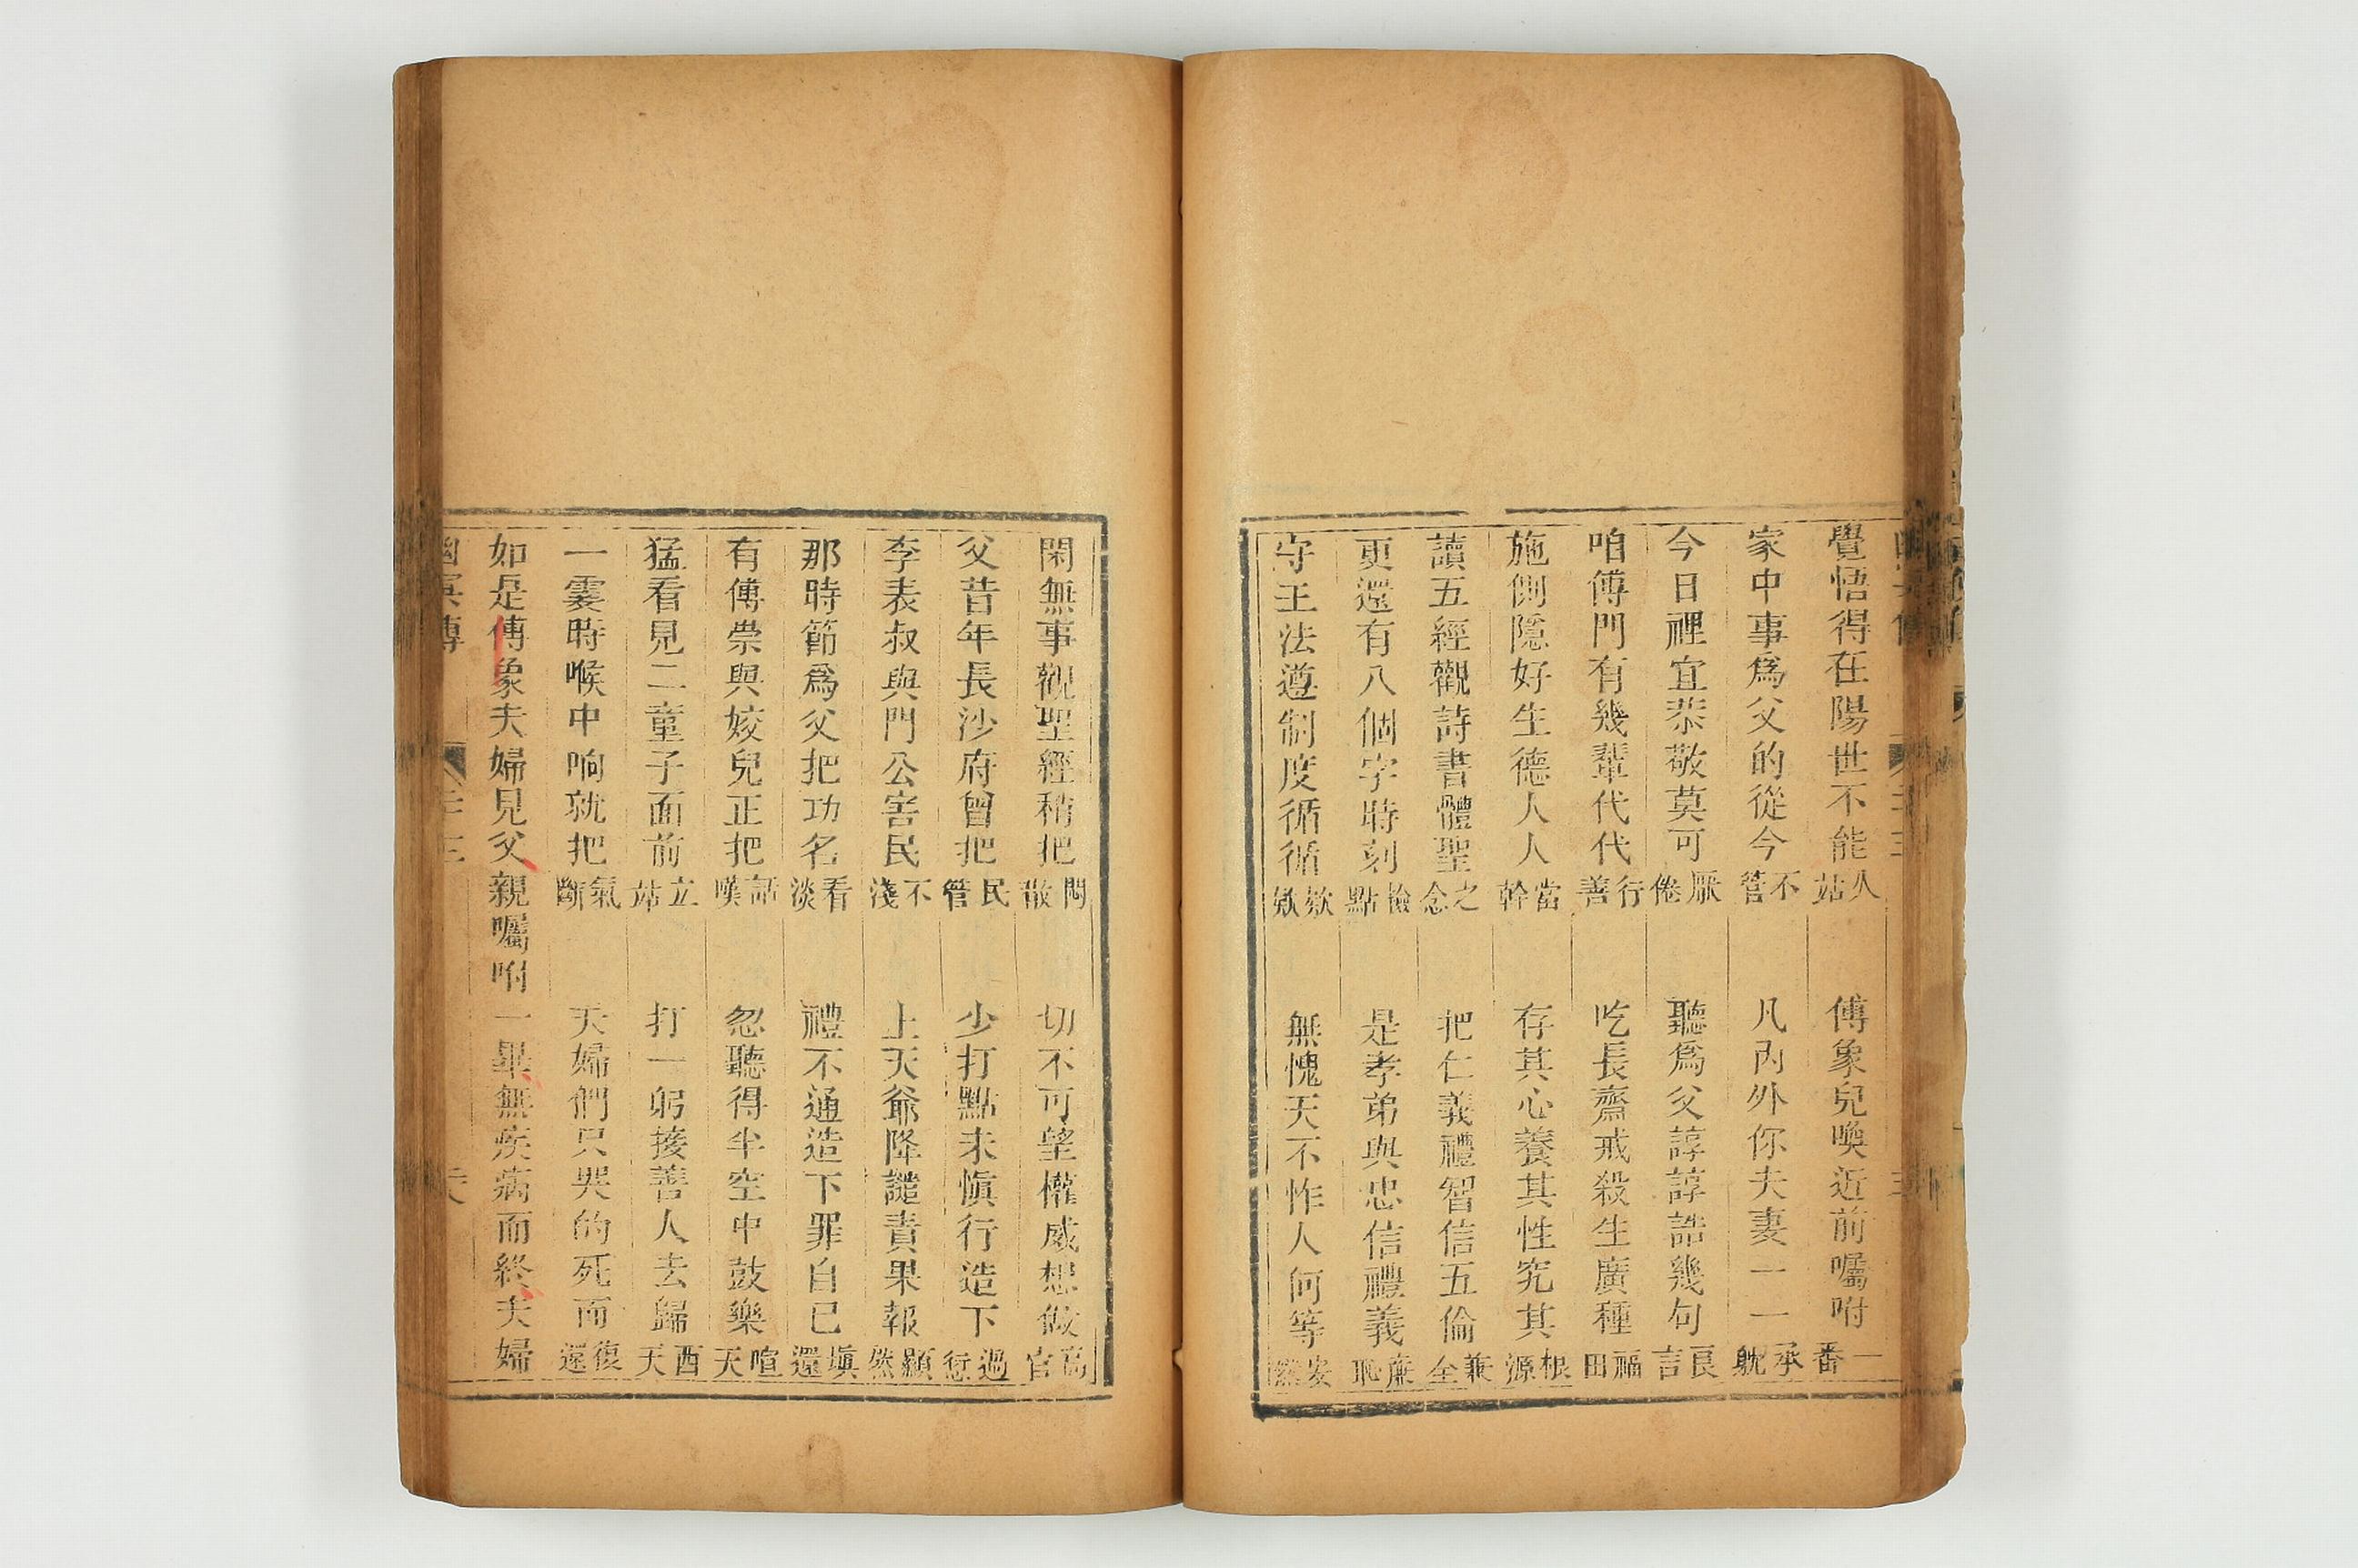 覺悟得在陽世不能久站　傅象兒喚近前囑咐一番
家中事爲父的從今不管　凡內外你夫妻一一承躭
今日裡宜恭敬莫可厭倦　聽爲父諄諄誥幾句良言
咱傅門有幾輩代代行善　吃長齋戒殺生廣種福田
施側隱好生德人人當幹　存其心養其性究其根源
讀五經觀詩書體聖之念　把仁義禮智信五倫兼全
更還有八個字時刻檢點　是孝弟與忠信禮義廉恥
守王法遵制度循循欸欸　無愧天不怍人何等安然
閑無事觀聖經稍把悶散　切不可望權威想做高官
父昔年長沙府曾把民管　少打點未愼行造下過愆
李表叔與門公害民不淺　上天爺降譴責果報顯然
那時節爲父把功名看淡　禮不通造下罪自已塡還
有傅崇與姣兒正把話嘆　忽聽得半空中鼓樂喧天
猛看見二童子面前立站　打一躬接善人去歸酉天
一霎時喉中响就把氣斷　夫婦們只哭的死而復還
如是傅象夫婦見父親囑咐一畢無疾病而終夫婦
幽冥傳　卷三　六